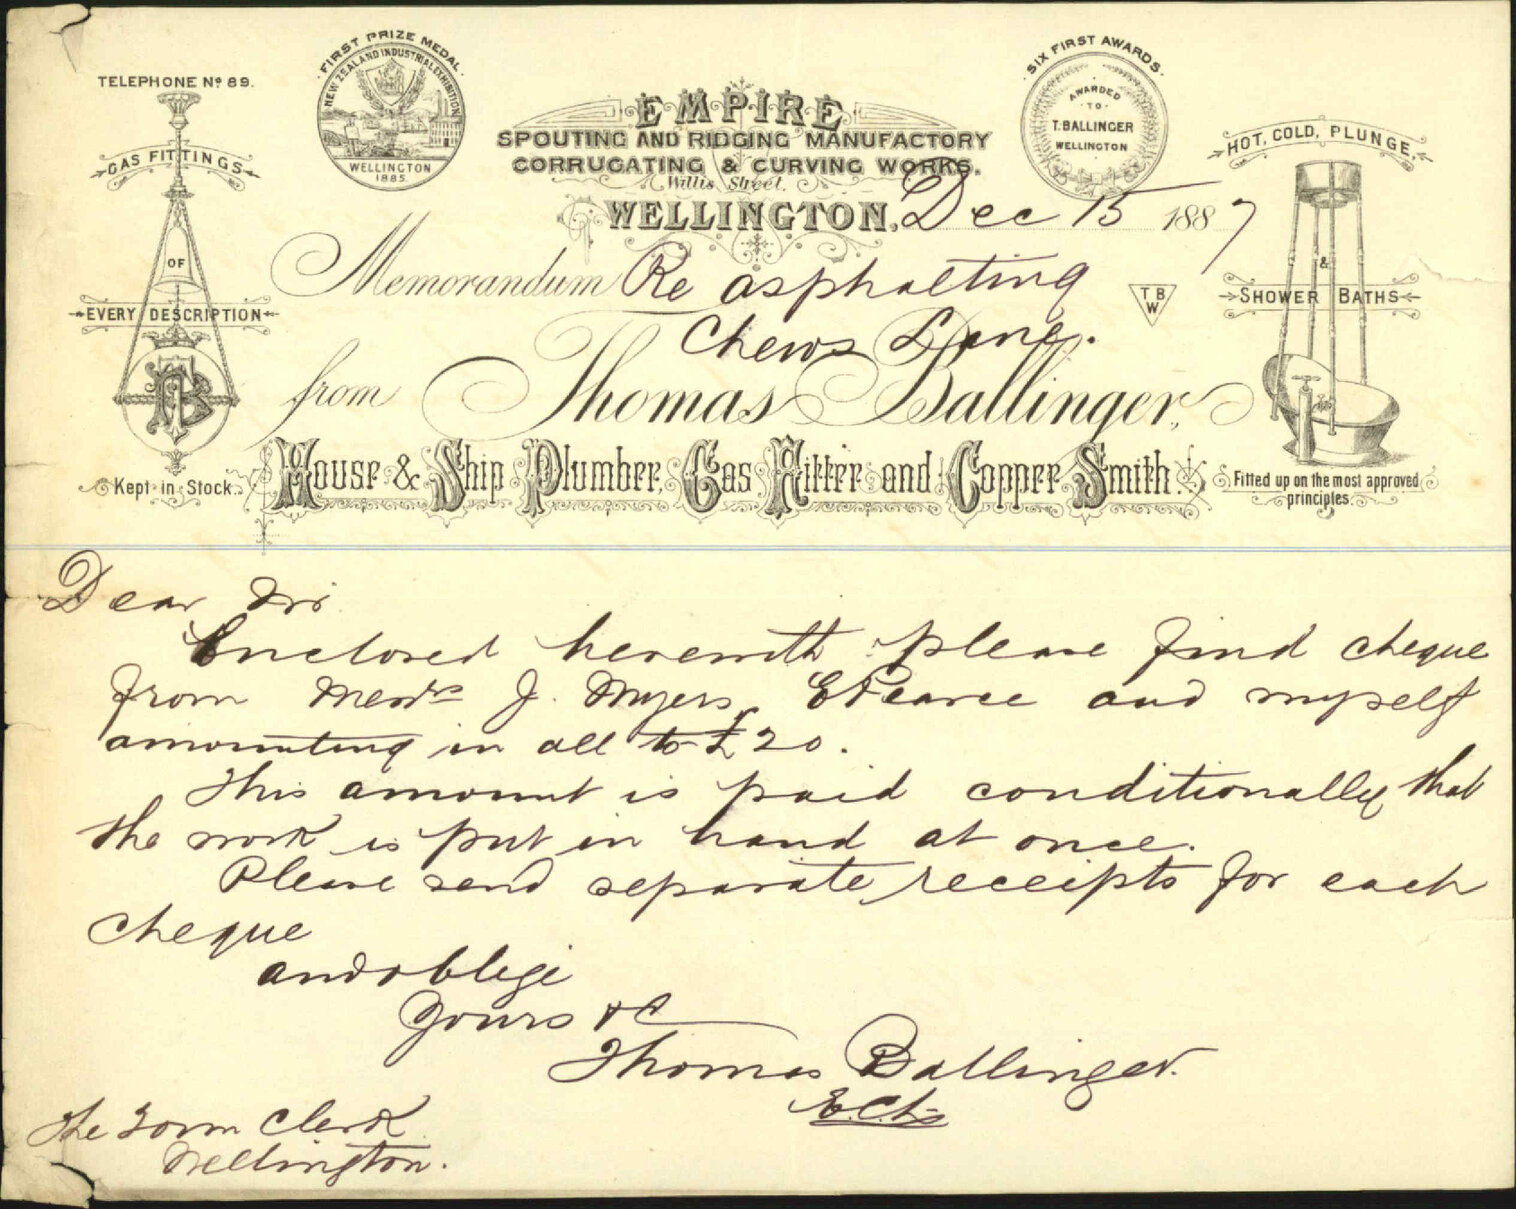 TELEPHONE Nº 89.
GAS FITTINGS
OF
EVERY DESCRIPTION
TB
Kept in Stock.
FIRST PRIZE MEDAL.
NEW ZEALAND INDUSTRIAL EXHIBITION
WELLINGTON
1885.
EMPIRE
SPOUTING AND RIDGING MANUFACTORY
CORRUGATING & CURVING WORKS.
Willis Street.
WELLINGTON, Dec 15 1887
SIX FIRST AWARDS.
AWARDED
TO
T. BALLINGER
WELLINGTON
HOT, COLD, PLUNGE,
&
SHOWER BATHS
Fitted up on the most approved
principles.
Memorandum Re asphalting
Chews Lane.
T B
W
from Thomas Ballinger,
House & Ship Plumber, Gas Fitter and Copper Smith.
Dear Sir
Enclosed herewith please find cheque
from Messrs J. Myers, E Pearce and myself
amounting in all to £20.
This amount is paid conditionally that
the work is put in hand at once.
Please send separate receipts for each
cheque
and oblige
Yours &C
Thomas Ballinger.
The Town Clerk
Wellington.